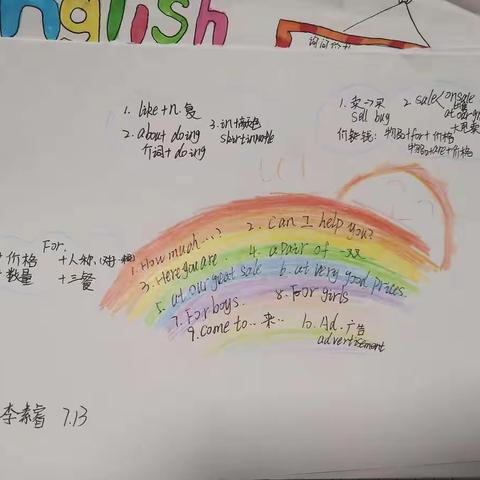 nglish
询问价
1. like+n.复
2. about doing
介词+doing
3. in+颜色
1. 卖→买
sell buy
2. sale
onsale
价表钱: 物品+for+价格
物品+are+价格
For.
+价格
+数量
+人称
+三餐
1. How much...?
2. Can I help you?
3. Here you are.
4. a pair of 一双
5. at our great sale
6. at very good prices.
7. For boys.
8. For girls
9. Come to.. 来..
10. Ad. 广告
advertisement
李素睿 7.13